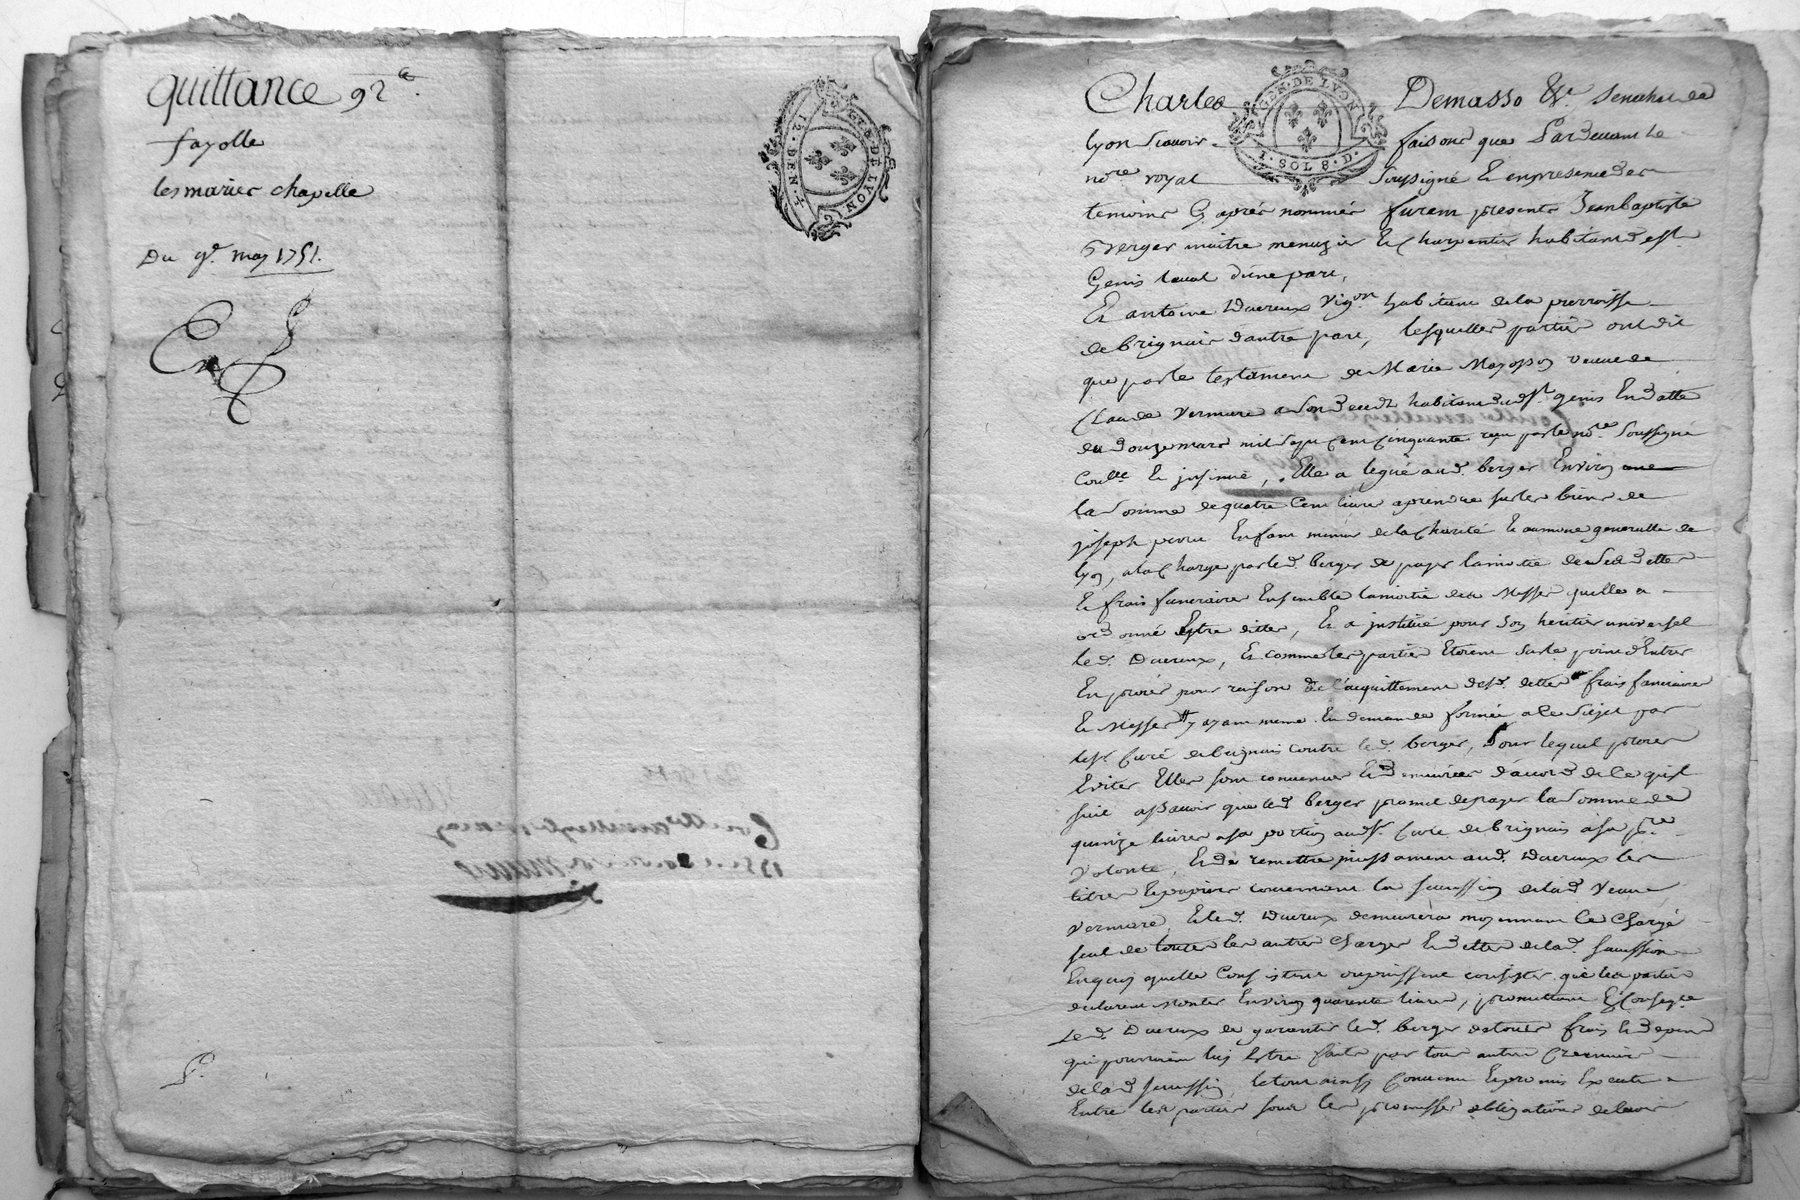 quittance 92
fayolle
les mariez chapelle
Du 9e. may 1751.
GEN. DE LYON.
12. DEN.
Charles Demasso &c. senechal de
GEN. DE LYON
1. SOL 8. D.
lyon scavoir faisons que Pardevant le
nore royal soussigné & en presence des
temoins cy aprés nommés furent presents Jean baptiste
Berger maitre menuzier & charpentier habitant dest
Genis laval dune part,
Et antoine Ducreux vigon habitant de la parroisse
de brignais dautre part, lesquelles parties ont dit
que par le testament de Marie veuve de
Claude Vermare a son deces habitante dudt. st genis En datte
du douze mars mil sept cent cinquante reçu par le nore. soussigné
Coullé & insinué, Elle a legué aud. berger Environ
la somme de quatre Cent livres a prendre sur les biens de
joseph Enfant mineur de la Charité & aumone generalle de
lyon, a la Charge par led. berger de payer la moitié de ses dettes
& frais funeraires Ensemble la moitié des Messes quelle a
ordonné Estre dittes, & a justitué pour son heritier universel
led. Ducreux, Et comme les parties Etoient sur le point d'Entrer
En procés pour raison de l'acquittement desd. dettes frais funeraires
& Messes y ayant meme Eu demande formée a ce sujet par
le sr. Curé de brignais contre led. berger, Pour lequel proces
Eviter Elles sont convenues & demeurées d'accord de ce qui
suit assavoir que led. berger promet de payer la somme de
quinze livres a sa portion audt. sr. Curé de brignais à sa pre.
volonté, Et de remettre aud. Ducreux les
titres & papiers concernant la succession de lad. Veuve
Vermare, Et led. Ducreux demeurera moyennant Ce Chargé
seul de toutes les autres charges & dettes de lad. succession
En quoy quelle Consistent ou puissent consister que les parties
declarent Monter Environ quarente livres, promettant
led. Ducreux de garantir led. berger de tous frais & depens
qui pourroient luy Estre faits par tous autres Creanciers
de lad. succession, le tout ainsy Convenu & promis Executer
Entre les parties sous les promesses obligations de biens